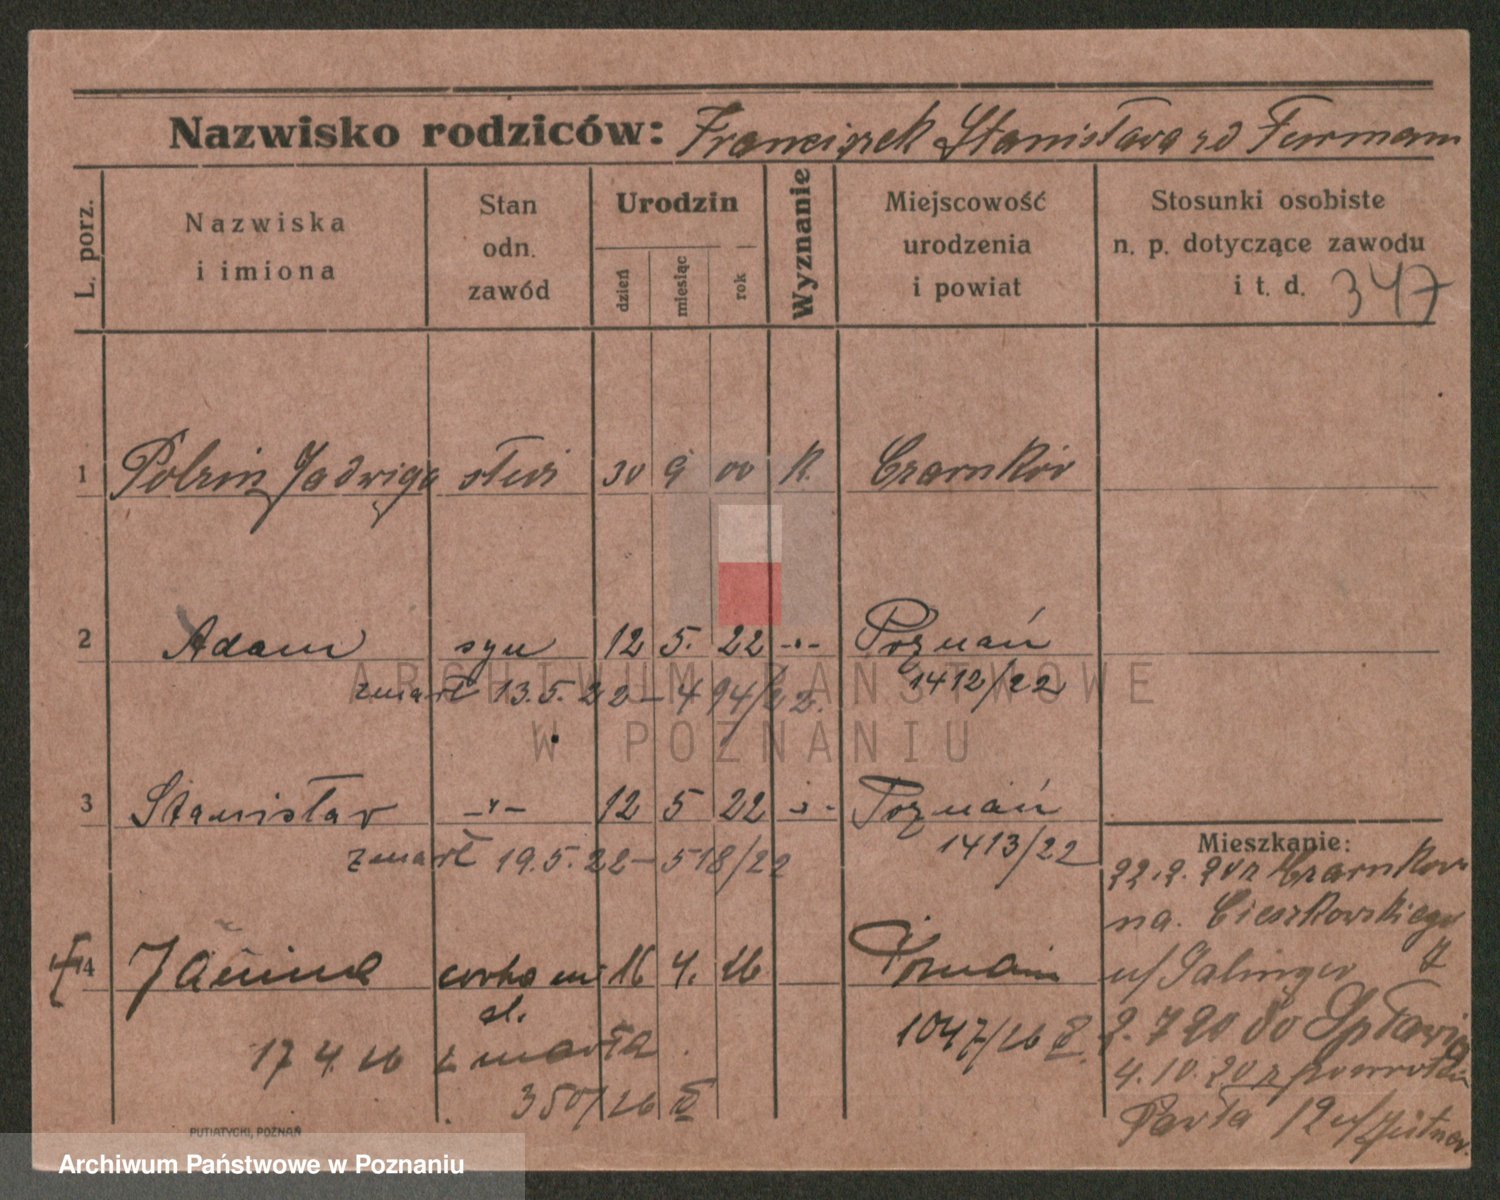 Nazwisko rodziców: Franciszek Stanisława zd Furmann
L. porz.
Nazwiska
i imiona
Stan
odn.
zawód
Urodzin
dzień
miesiąc
rok
Wyznanie
Miejscowość
urodzenia
i powiat
Stosunki osobiste
n. p. dotyczące zawodu
i t. d. 347
1 Polzin Jadwiga służ 30 9 00 K. Czarnków
2 Adam syn 12 5. 22 -"- Poznań
zmarł 13.5.22 – 494/22. 1412/22
3 Stanisław -"- 12 5 22 -"- Poznań
zmarł 19.5.22 – 518/22 1413/22
4 Janina córka 16 4. 26 Poznań
sl.
17 4. 26 zmarła 1047/26
350/26
Mieszkanie:
22.9.20 z Czarnkow
na. Cieszkowskiego 7
u/Salinger
2.7 20 do Spławia
4.10.20 z powrotem
Pawła 12 u/
PUTIATYCKI, POZNAŃ
ARCHIWUM PAŃSTWOWE
W POZNANIU
Archiwum Państwowe w Poznaniu